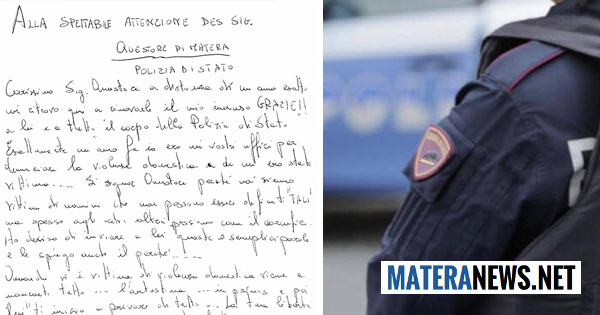 ALLA SPETTABILE ATTENZIONE DEL SIG.
QUESTORE DI MATERA
POLIZIA DI STATO
Carissimo Sig. Questore a distanza di un anno esatto
mi ritrovo qui a rinnovarle il mio immenso GRAZIE!!
a lei e a tutto il corpo della Polizia di Stato.
Esattamente un anno fa io ero nei vostri uffici per
denunciare la violenza domestica di cui ero stata
vittima..... Si signor Questore perché noi siamo
vittime di uomini che non possono essere definiti "TALI"
ma spesso agli occhi altrui passiamo come il carnefice.
Ho deciso di inviare a lei queste 2 semplici parole
e le spiego anche il perché.....
Quando si è vittima di violenza domestica viene a
mancarti tutto... l'autostima... in primis e poi
inizi a privare di tutto... La tua libertà
MATERANEWS.NET